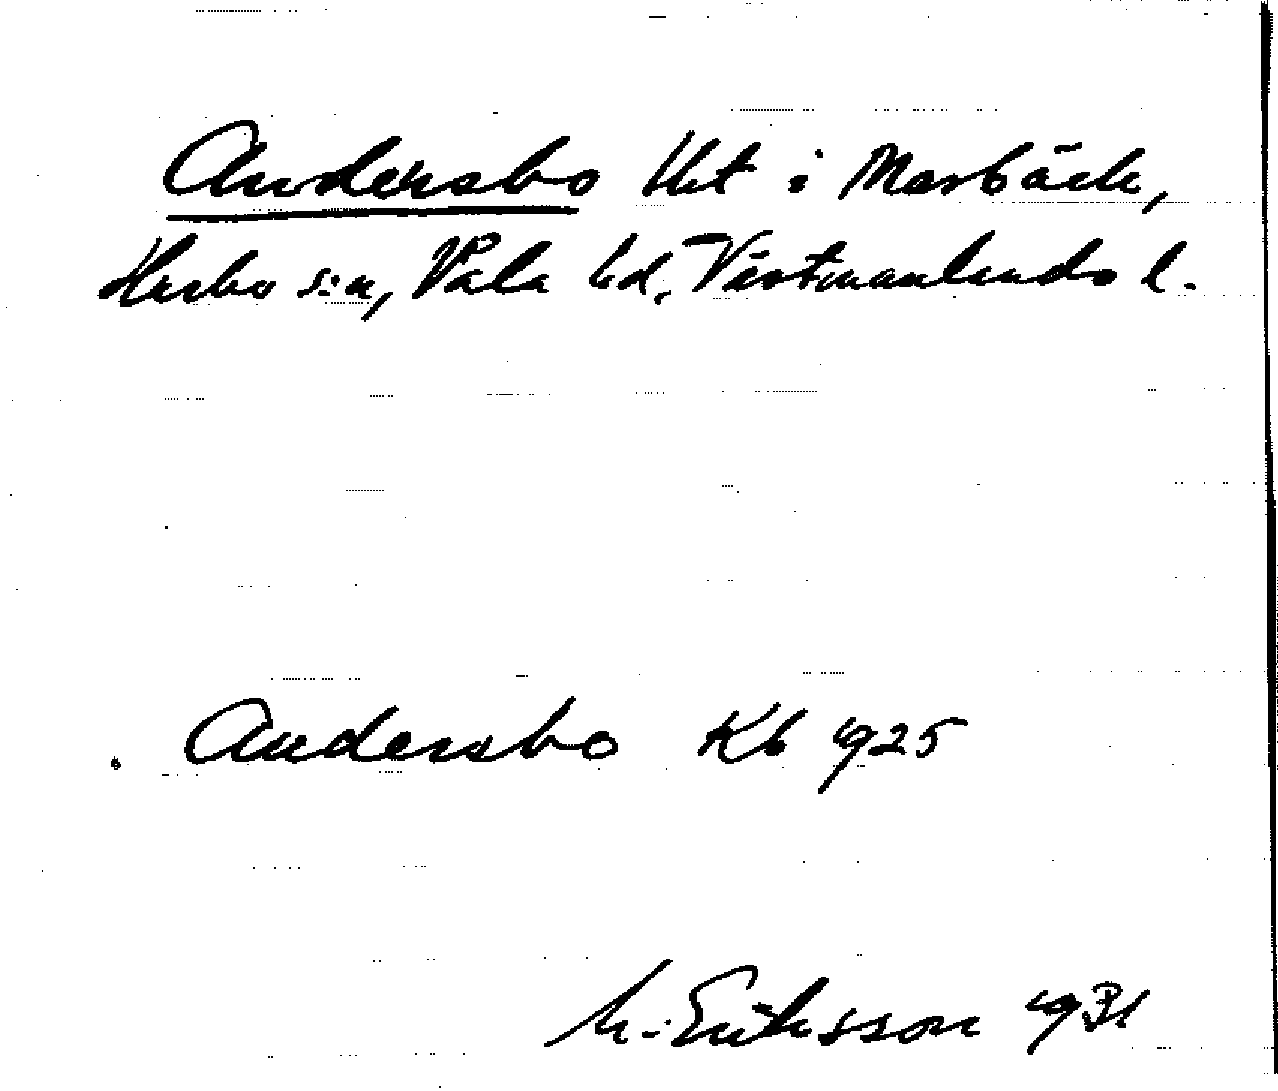 Andersbo lht i Morbäck,
Harbo s:n, Våla hd, Västmanlands l.
Andersbo Kb 1925
M. Eriksson 1931